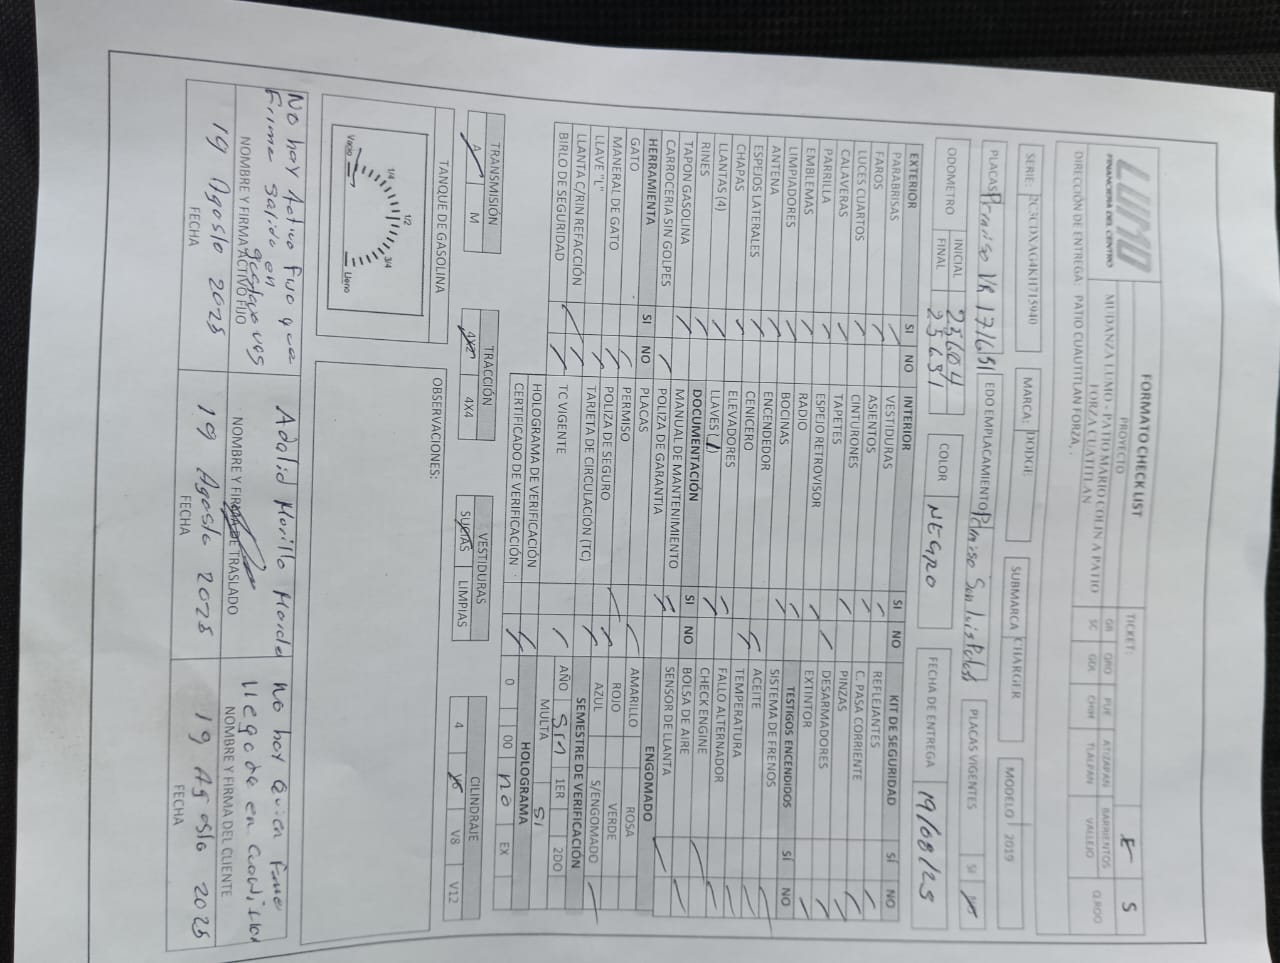 LUMO
FINANCIERA DEL CENTRO
FORMATO CHECK LIST
PROYECTO
MUDANZA LUMO - PATIO MARIO COLIN A PATIO
FORZA CUATITLAN
TICKET:
E S
GR QRO PUE ATIZAPAN BARRIENTOS Q.ROO
SC GDL CHIH TLALPAN VALLEJO
DIRECCIÓN DE ENTREGA: PATIO CUAUTITLAN FORZA, .
SERIE: 2C3CDXAG4KH715940
MARCA: DODGE
SUBMARCA CHARGER
MODELO 2019
PLACAS Permiso VR 171651
EDO EMPLACAMIENTO Permiso San Luis Potosi
PLACAS VIGENTES SI
ODOMETRO
INICIAL 25604
FINAL 25631
COLOR NEGRO
FECHA DE ENTREGA 19/08/25
EXTERIOR SI NO
PARABRISAS
FAROS
LUCES CUARTOS
CALAVERAS
PARRILLA
EMBLEMAS
LIMPIADORES
ANTENA
ESPEJOS LATERALES
CHAPAS
LLANTAS (4)
RINES
TAPON GASOLINA
CARROCERIA SIN GOLPES
HERRAMIENTA SI NO
GATO
MANERAL DE GATO
LLAVE "L"
LLANTA C/RIN REFACCIÓN
BIRLO DE SEGURIDAD
INTERIOR SI NO
VESTIDURAS
ASIENTOS
CINTURONES
TAPETES
ESPEJO RETROVISOR
RADIO
BOCINAS
ENCENDEDOR
CENICERO
ELEVADORES
LLAVES (1)
DOCUMENTACIÓN SI NO
MANUAL DE MANTENIMIENTO
POLIZA DE GARANTIA
PLACAS
PERMISO
POLIZA DE SEGURO
TARJETA DE CIRCULACIÓN (TC)
TC VIGENTE
HOLOGRAMA DE VERIFICACIÓN
CERTIFICADO DE VERIFICACIÓN
KIT DE SEGURIDAD SÍ NO
REFLEJANTES
C. PASA CORRIENTE
PINZAS
DESARMADORES
EXTINTOR
TESTIGOS ENCENDIDOS SÍ NO
SISTEMA DE FRENOS
ACEITE
TEMPERATURA
FALLO ALTERNADOR
CHECK ENGINE
BOLSA DE AIRE
SENSOR DE LLANTA
ENGOMADO
AMARILLO ROSA
ROJO VERDE
AZUL S/ENGOMADO
SEMESTRE DE VERIFICACIÓN
AÑO Sin 1ER 2DO
MULTA SI
HOLOGRAMA
0 00 no EX
TRANSMISIÓN
A M
TRACCIÓN
4X2 4X4
VESTIDURAS
SUCIAS LIMPIAS
CILINDRAJE
4 V8 V12
TANQUE DE GASOLINA
Vacio 1/4 1/2 3/4 Lleno
OBSERVACIONES:
No hay Activo fijo que
Firme salida en
NOMBRE Y FIRMA ACTIVO FIJO
19 Agosto 2025
FECHA
Adalid Morillo
NOMBRE Y FIRMA DE TRASLADO
19 Agosto 2025
FECHA
No hay quien firme
llegada en
NOMBRE Y FIRMA DEL CLIENTE
19 Agosto 2025
FECHA